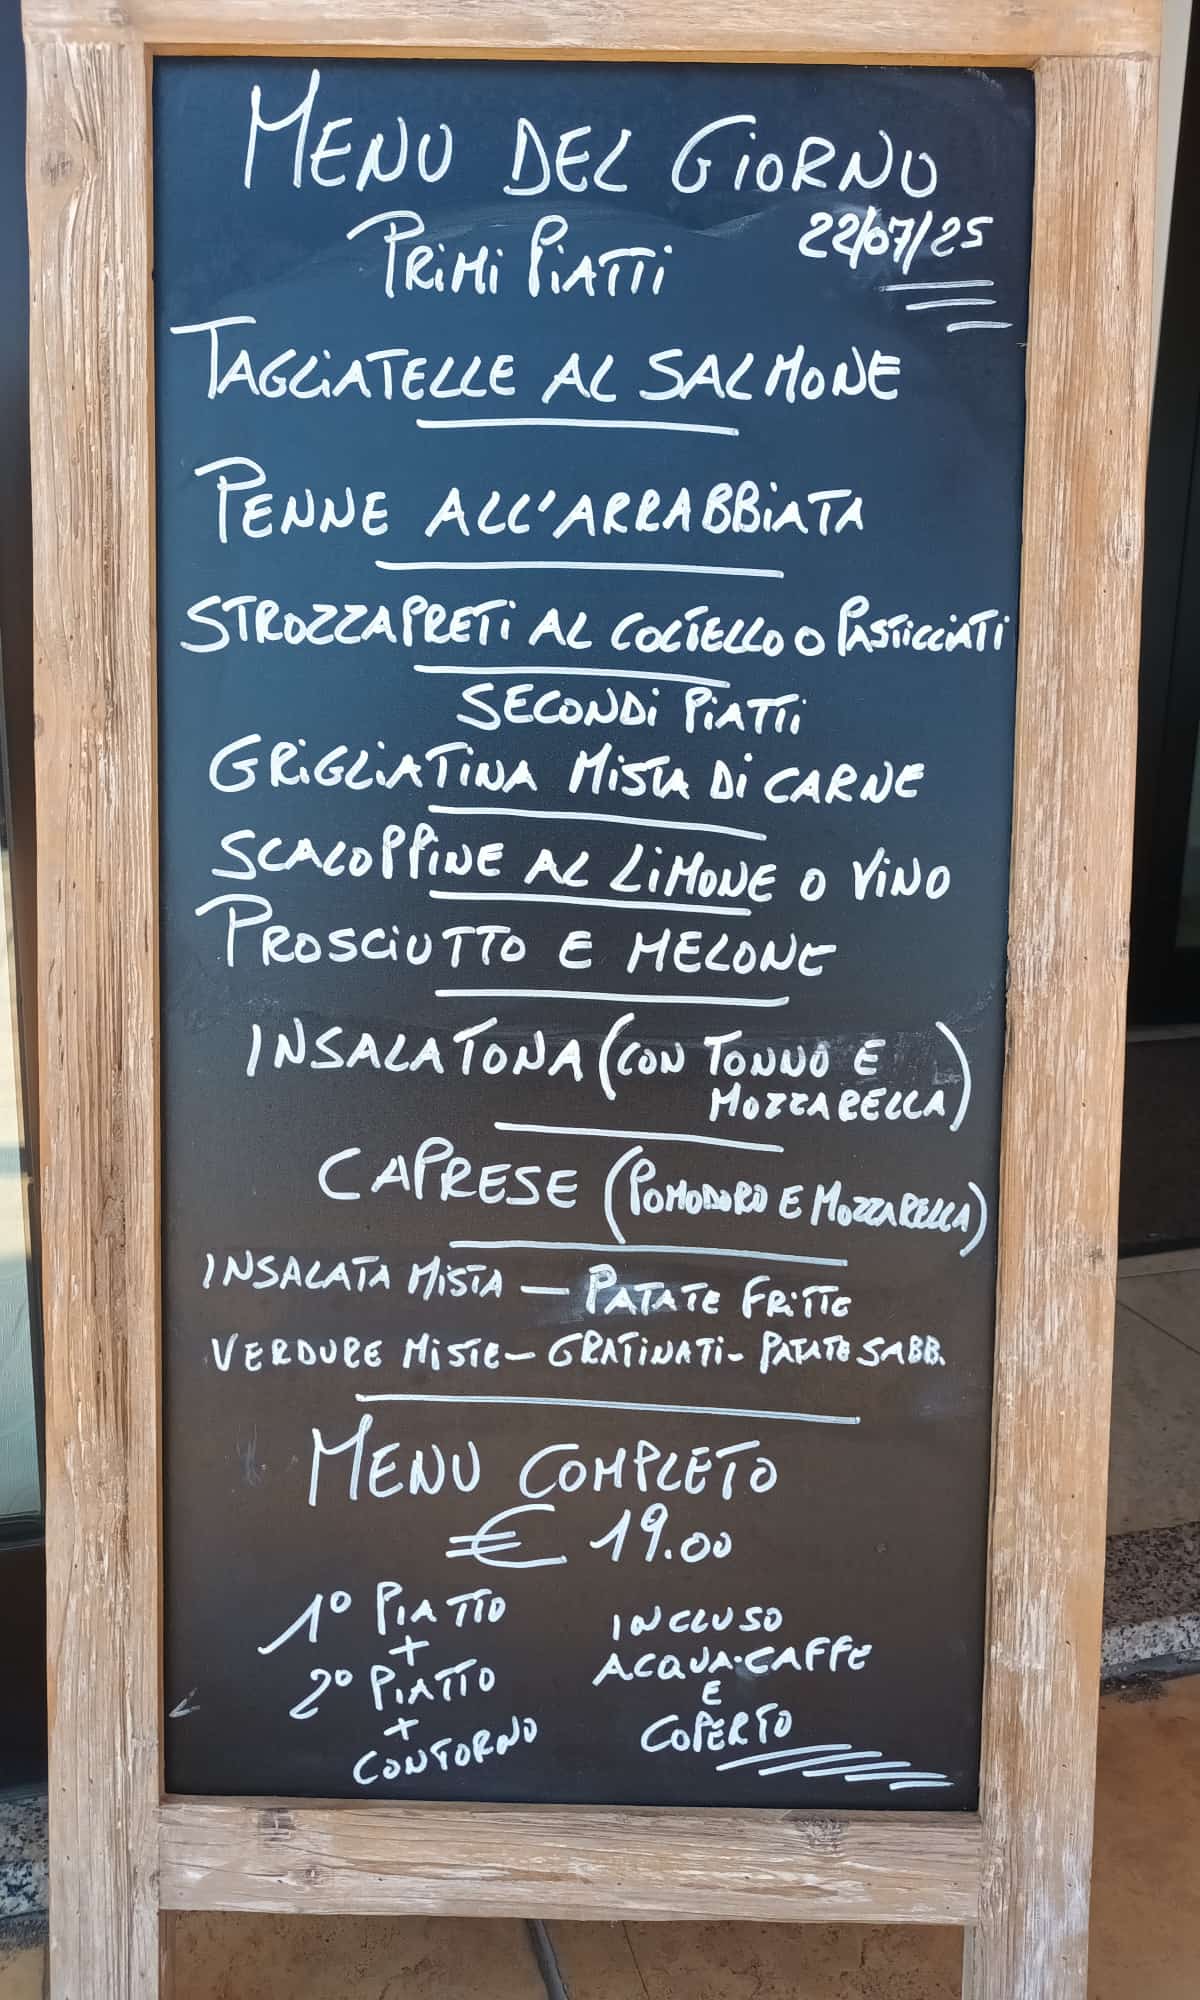 MENU DEL GIORNO
22/07/25
PRIMI PIATTI
TAGLIATELLE AL SALMONE
PENNE ALL'ARRABBIATA
STROZZAPRETI AL COLTELLO O PASTICCIATI
SECONDI PIATTI
GRIGLIATINA MISTA DI CARNE
SCALOPPINE AL LIMONE O VINO
PROSCIUTTO E MELONE
INSALATONA (CON TONNO E
MOZZARELLA)
CAPRESE (POMODORO E MOZZARELLA)
INSALATA MISTA – PATATE FRITTE
VERDURE MISTE – GRATINATI – PATATE SABB.
MENU COMPLETO
€ 19.00
1° PIATTO
+
2° PIATTO
+
CONTORNO
INCLUSO
ACQUA·CAFFE
E
COPERTO